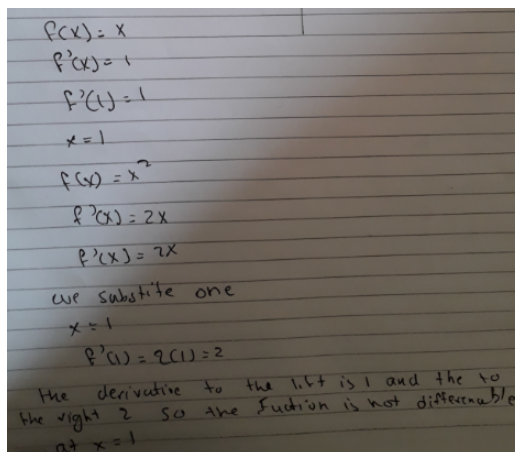 f(x) = x
f'(x) = 1
f'(1) = 1
x = 1
f(x) = x²
f'(x) = 2x
f'(x) = 2x
we substite one
x = 1
f'(1) = 2(1) = 2
the derivative to the left is 1 and the to
the right 2 so the fuction is not differenable
at x = 1